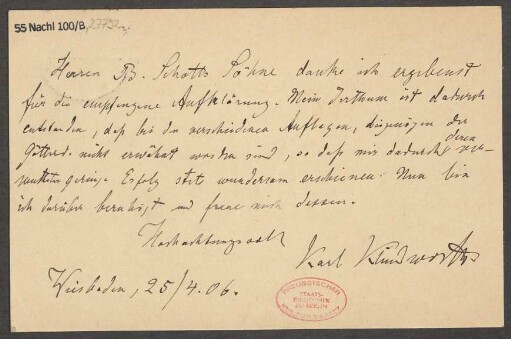 55 Nachl 100/B, 27792
Herren B. Schotts Söhne danke ich ergebenst
für die empfangene Aufklärung. Mein Irrthum ist dadurch
entstanden, daß bei den verschiedenen Auflagen, diejenigen der
nicht erwähnt worden sind, so daß mir dadurch deren
geringe Erfolg stets wundersam erschienen. Nun bin
ich darüber beruhigt und freue mich dessen.
Hochachtungsvoll
Karl Klindworth
Wiesbaden, 25/4.06.
PREUSSISCHER
STAATS-
BIBLIOTHEK
ZU BERLIN